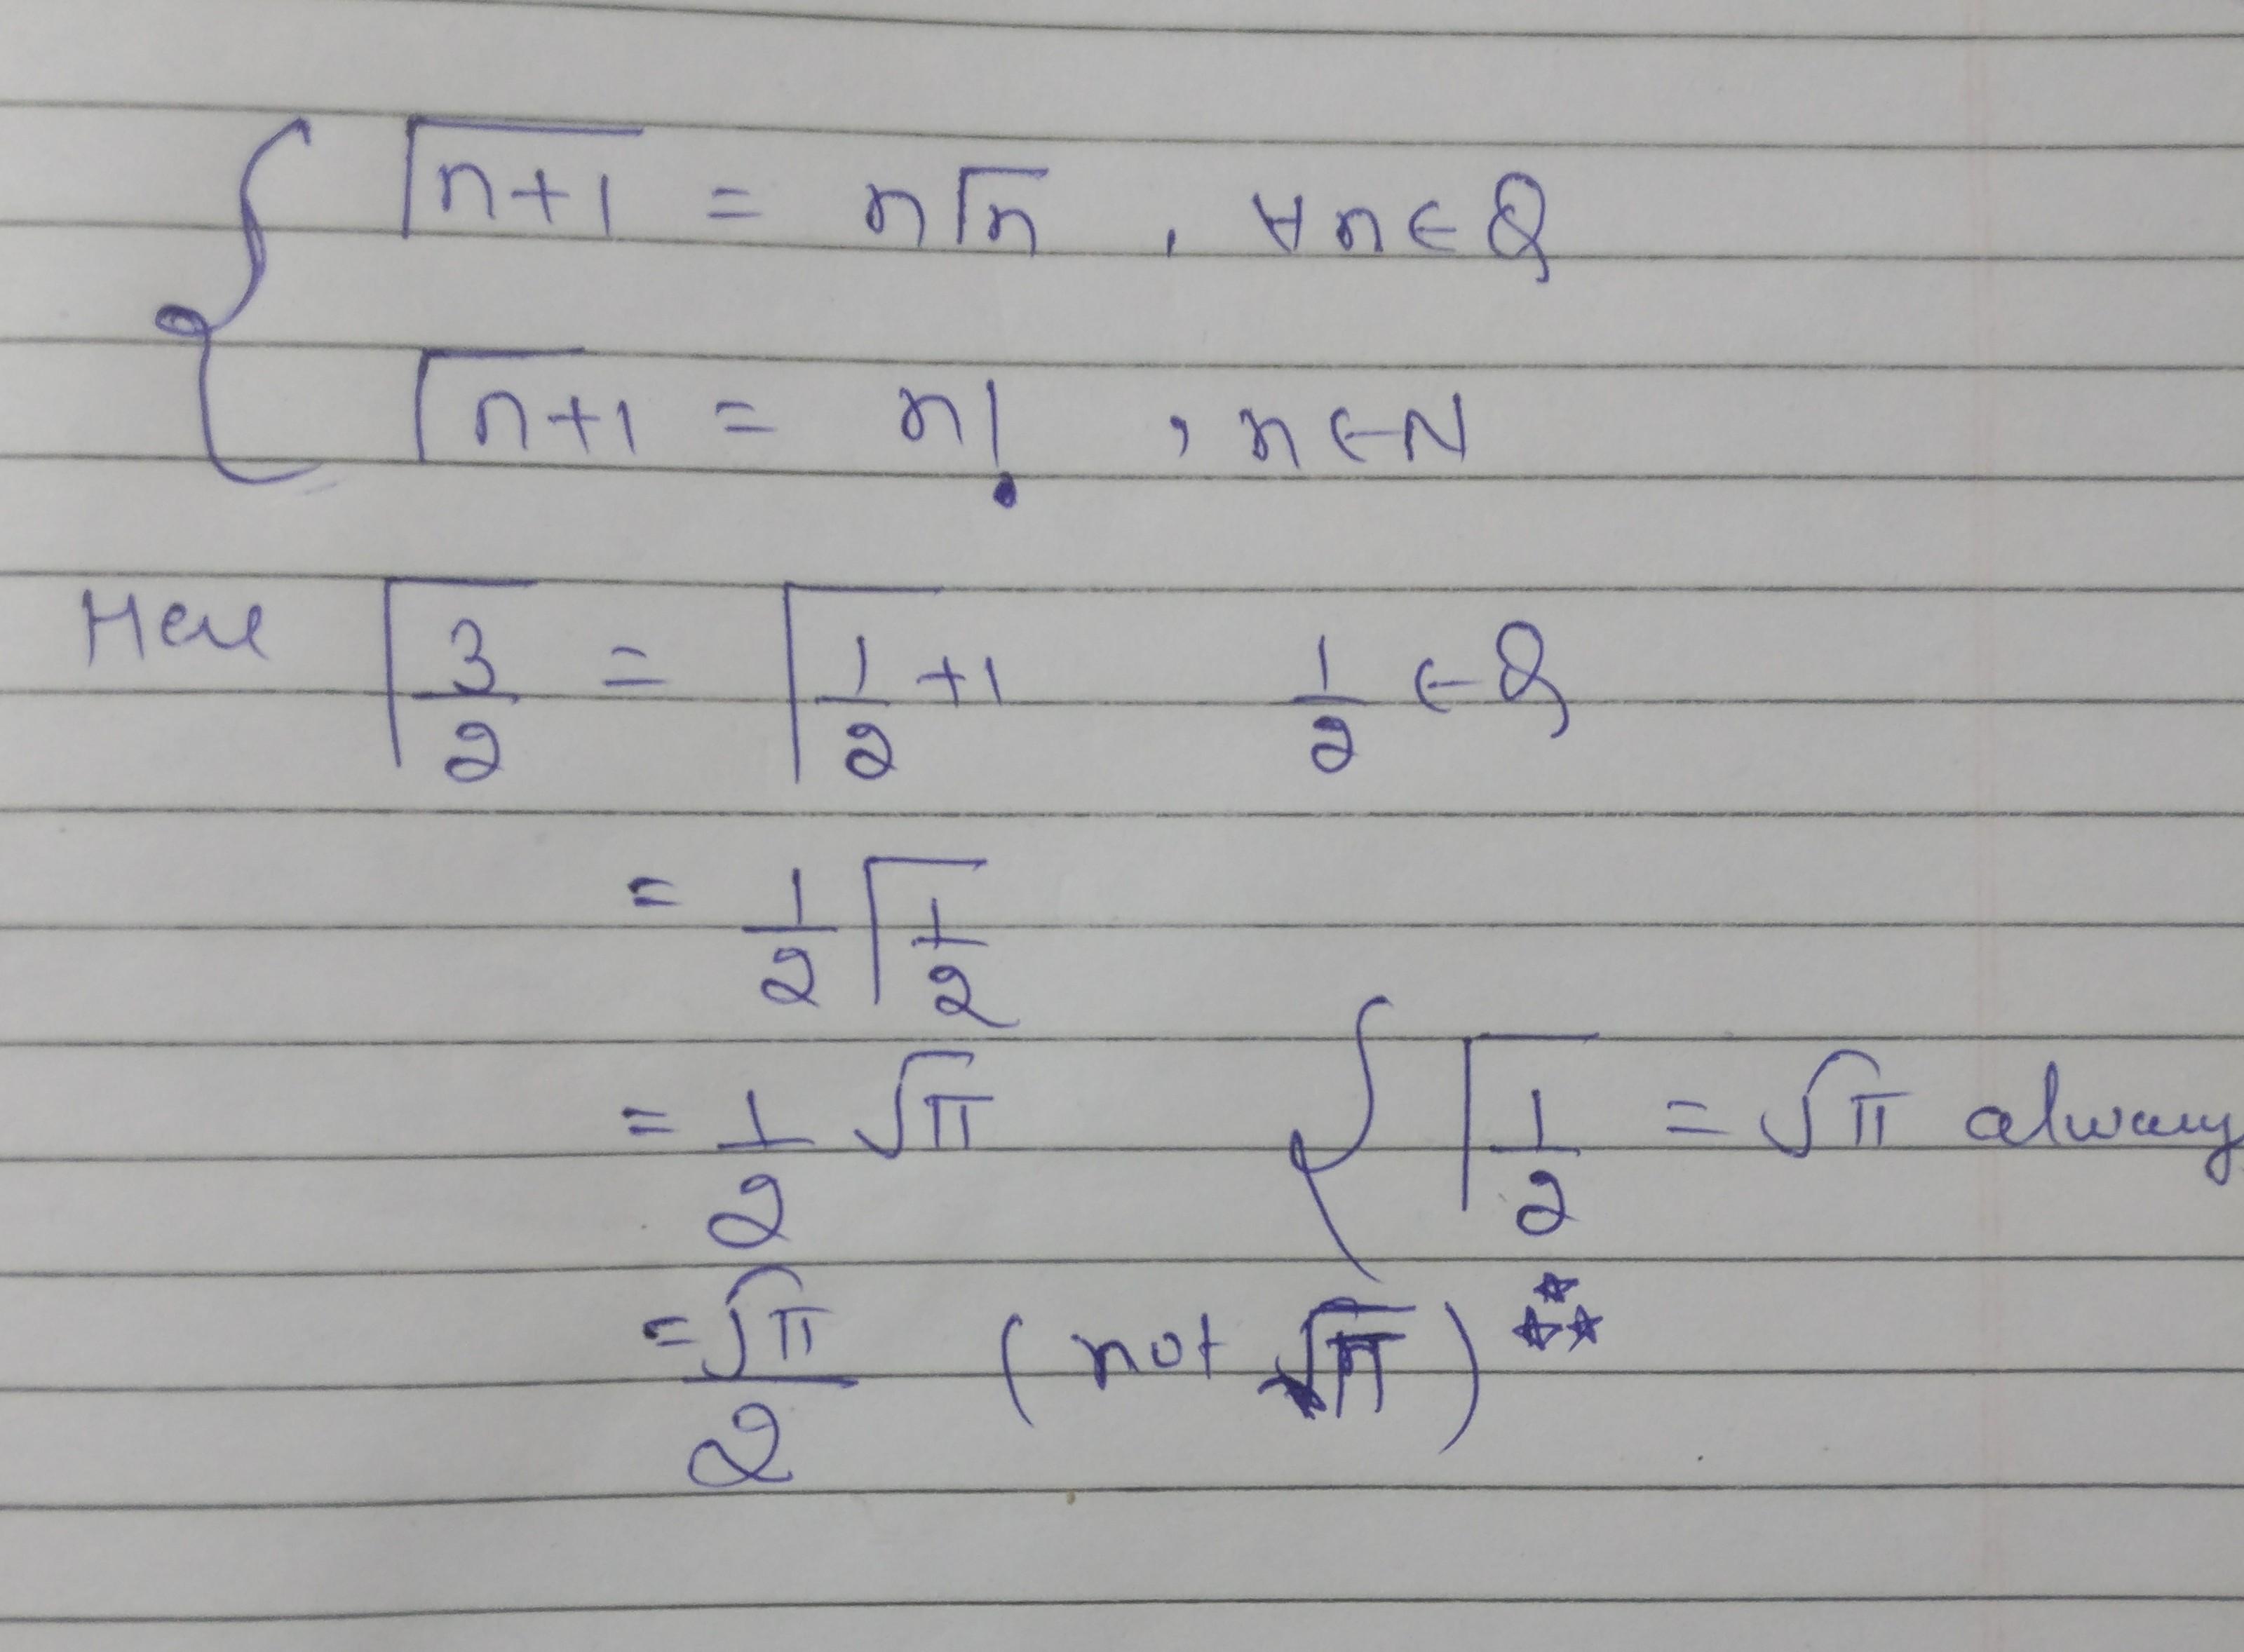 { Γn+1 = nΓn , ∀ n ∈ Q
Γn+1 = n! , n ∈ N
Here Γ3/2 = Γ1/2 + 1 1/2 ∈ Q
= 1/2 Γ1/2
= 1/2 √π { Γ1/2 = √π always
= √π/2 (not √π) ☆☆☆